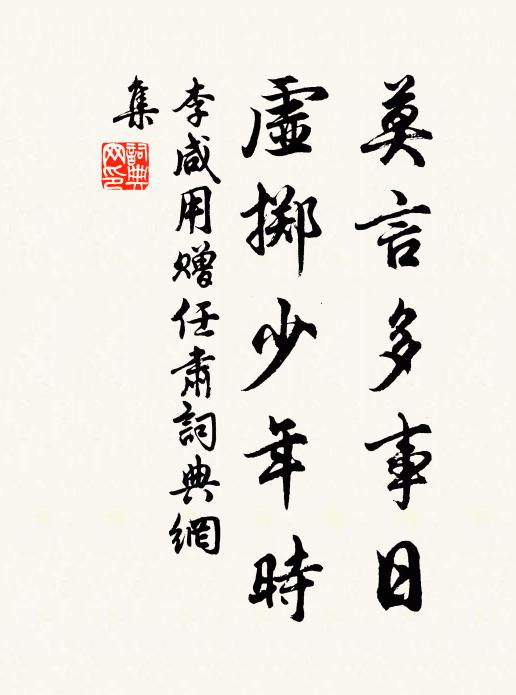 莫言多事日
虛擲少年時
李咸用赠任肅詞典網
集
詞典
网印